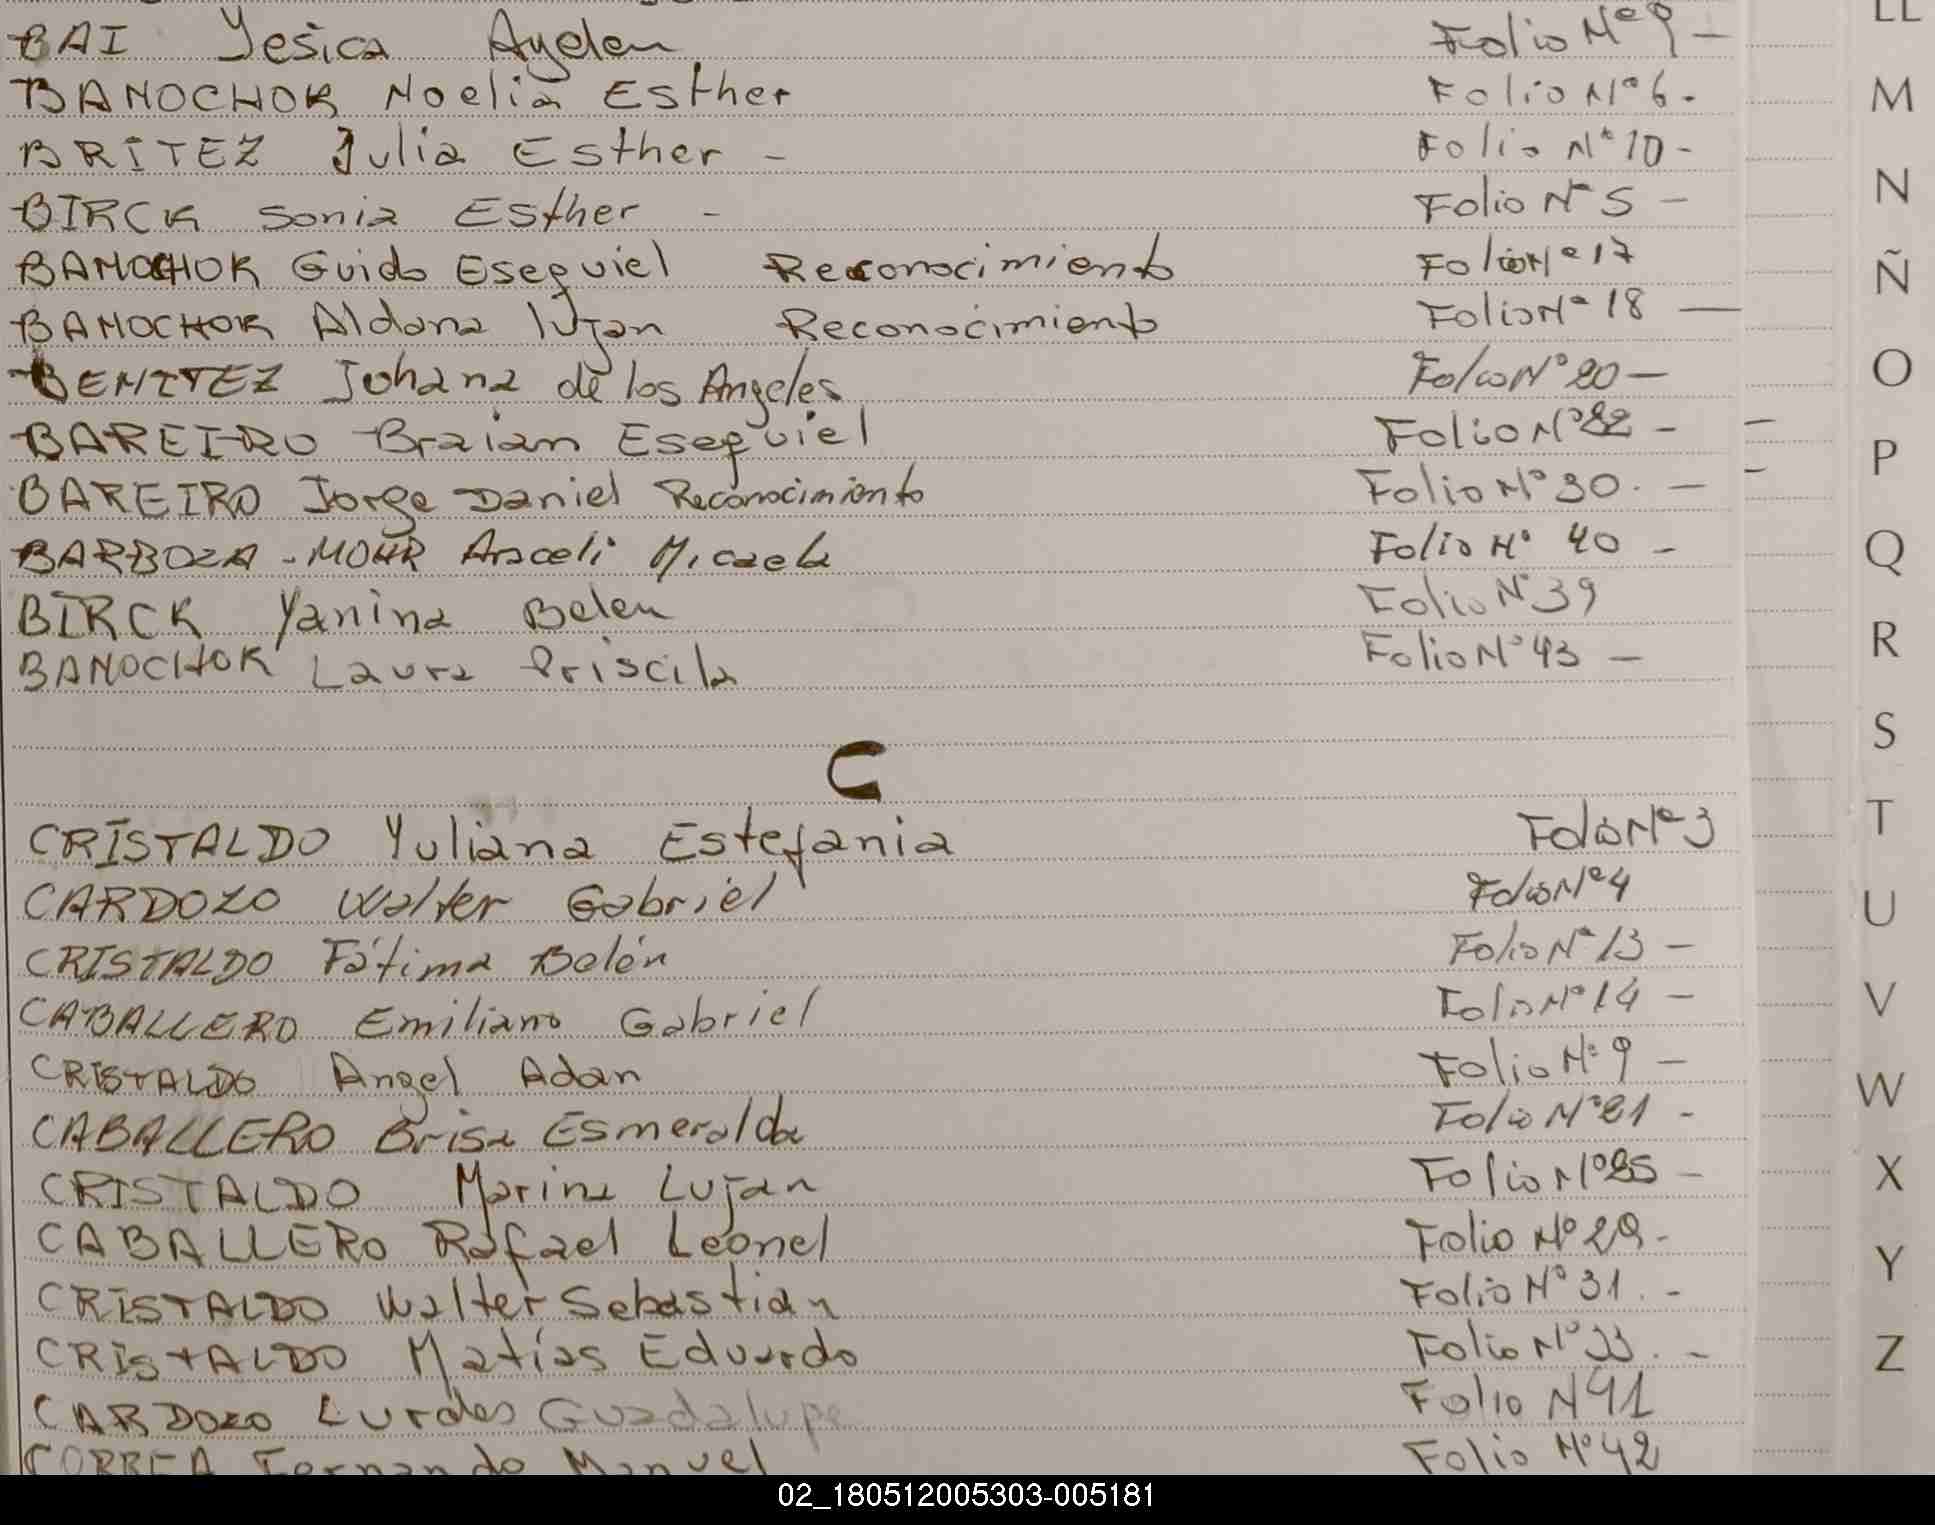 BAI Yesica Ayelen Folio Nº 9 -
BANOCHOK Noelia Esther Folio Nº 6 -
BRITEZ Julia Esther - Folio Nº 10 -
BIRCK Sonia Esther - Folio Nº 5 -
BANOCHOK Guido Esequiel Reconocimiento Folio Nº 17
BANOCHOK Aldana lujan Reconocimiento Folio Nº 18 -
BENITEZ Johana de los Angeles Folio Nº 20 -
BAREIRO Braian Esequiel Folio Nº 22 -
BAREIRO Jorge Daniel Reconocimiento Folio Nº 30. -
BARBOZA - MOHR Araceli Micaela Folio Nº 40 -
BIRCK Yanina Belen Folio Nº 39
BANOCHOK Laura Priscila Folio Nº 43 -
C
CRISTALDO Yuliana Estefania Folio Nº 3
CARDOZO Walter Gabriel Folio Nº 4
CRISTALDO Fátima Belén Folio Nº 13 -
CABALLERO Emiliano Gabriel Folio Nº 14 -
CRISTALDO Angel Adan Folio Nº 9 -
CABALLERO Brisa Esmeralda Folio Nº 21 -
CRISTALDO Marina Lujan Folio Nº 25 -
CABALLERO Rafael Leonel Folio Nº 29 -
CRISTALDO Walter Sebastian Folio Nº 31. -
CRISTALDO Matías Eduardo Folio Nº 33. -
CARDOZO Lurdes Guadalupe Folio N 41
CORREA Fernando Manuel Folio Nº 42
LL
M
N
Ñ
O
P
Q
R
S
T
U
V
W
X
Y
Z
02_180512005303-005181